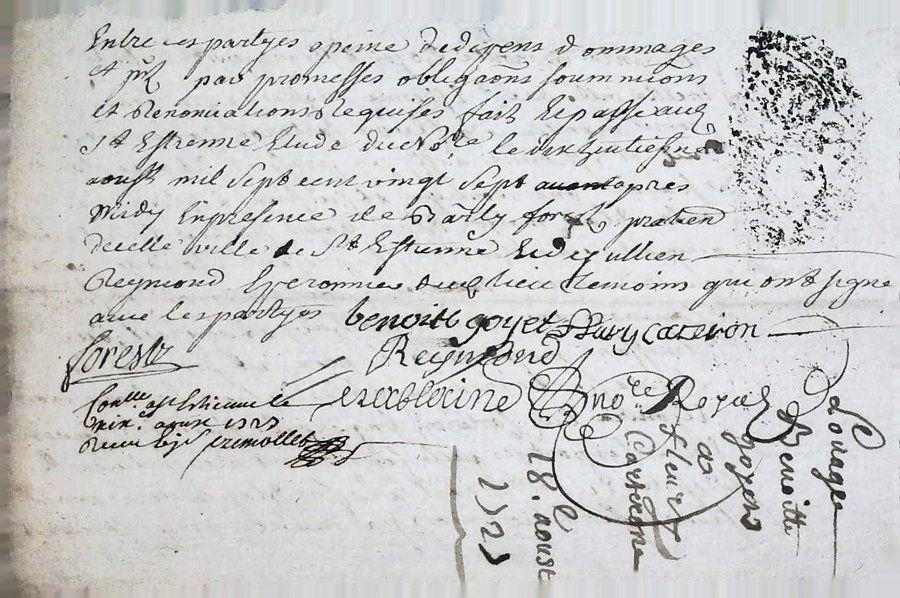 Entre les partyes a peine de depens dommages
et par promesses obligaons soummions
et Renonciations Requises fait Et passe aud
St Estienne Etude du No.re le dix huitiesme
aoust mil sept cent vingt sept avant apres
Midy En presence de forest praticien
de celle ville de St Estienne Et de Jullien
Reymond Esperonnier dud lieu temoins qui ont signe
avec les partyes benoitt goyet fleury cateron
forest Reymond
no.re Royal
Con.lle a St Estienne le
aoust 1727
Receu
Louage
Benoitte
goyet
a
fleury
18.e aoust
1727